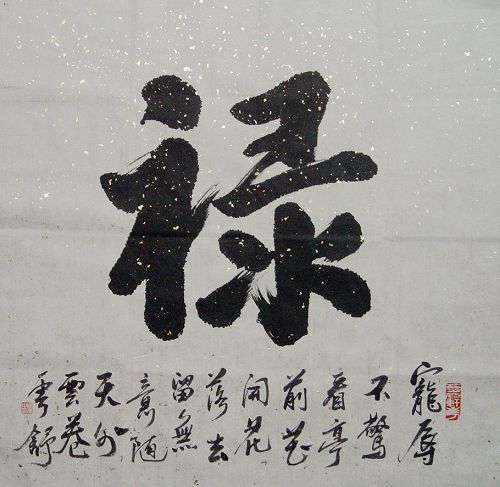 禄
寵辱
不驚
看亭
前花
開花
落去
留無
意随
天外
雲卷
雲舒